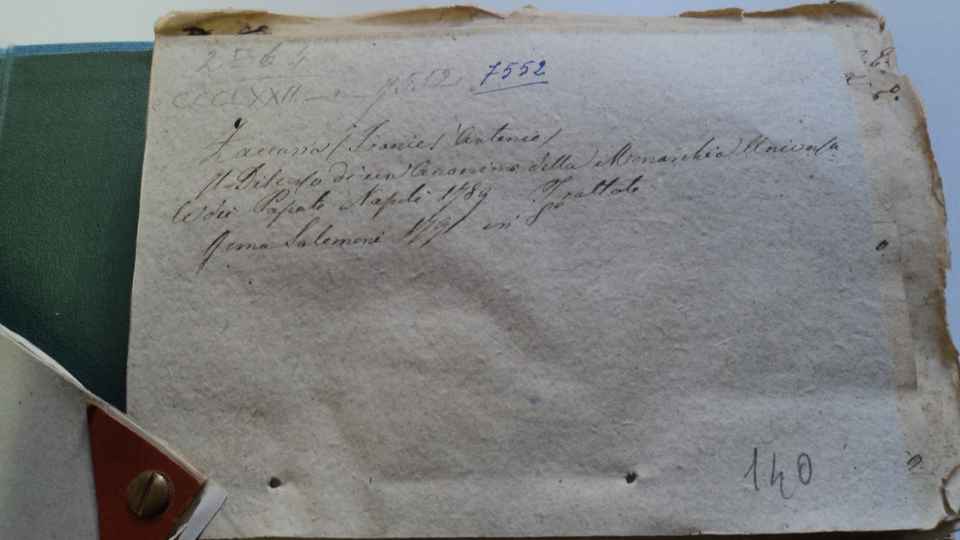 2564
CCCLXXII 7552
Zaccaria (Francesco Antonio)
Discorso di un Anonimo della Monarchia Universa
Papato Napoli 1789 Trattato
Roma Salomoni in 8o
140